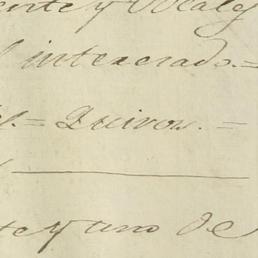 ente y Reales
el interesado.=
= Quiros. =
te y uno de